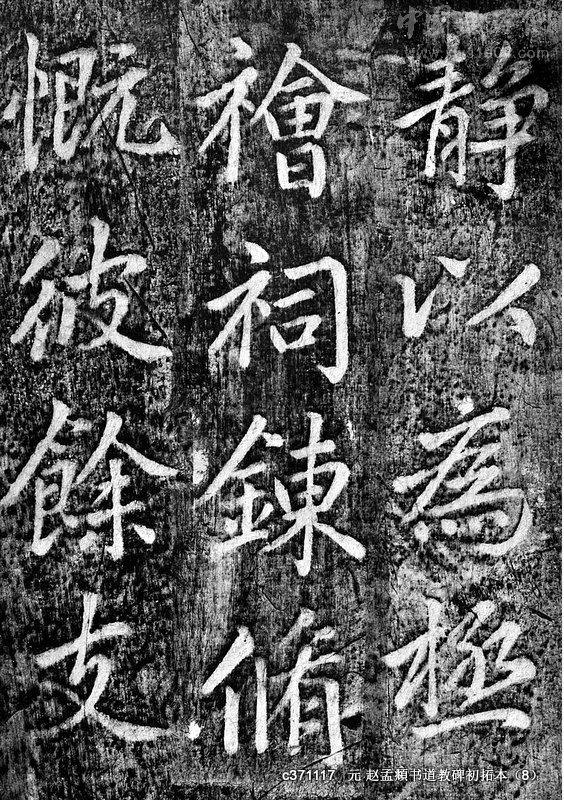 静以為極
禬祠鍊脩
慨彼餘支
c371117 元 赵孟頫书道教碑初拓本（8）